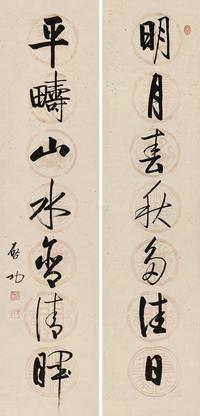 明月春秋多佳日
平畴山水含清晖
启功